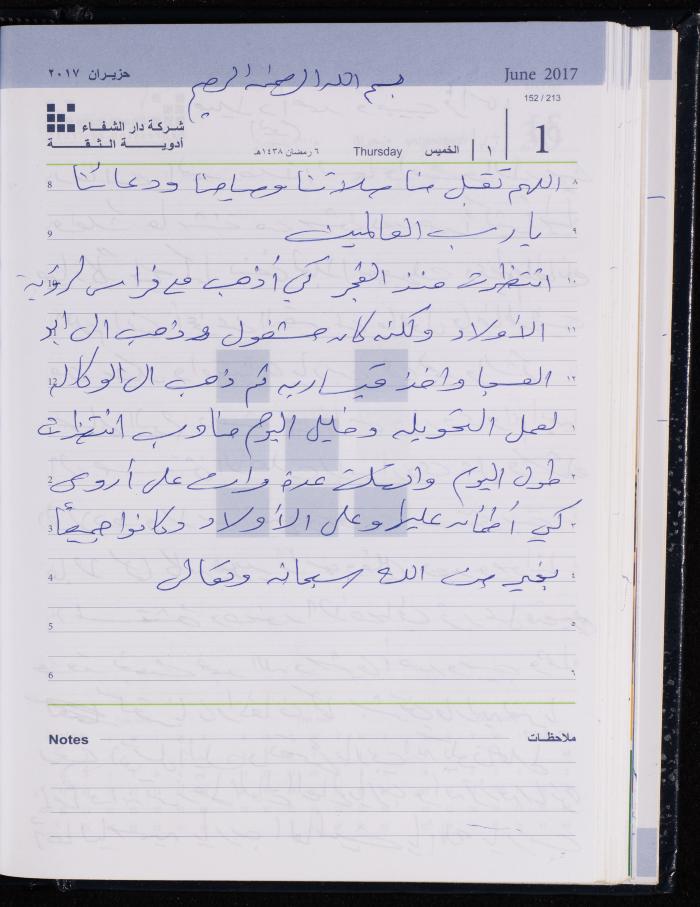 حزيران ٢٠١٧
بسم الله الرحمن الرحيم
June 2017
152 / 213
شركة دار الشفاء
أدوية الثقة
٦ رمضان ١٤٣٨هـ Thursday الخميس ١ 1
8 اللهم تقبل منا صلاتنا وصيامنا ودعائنا ٨
9 يا رب العالمين ٩
10 انتظرت منذ الفجر كي أذهب مع فراس لرؤية ١٠
الأولاد ولكنه كان مشغول وذهب الى ابو ١١
12 واخذ ثم ذهب الى الوكالة ١٢
لعمل التحويله وخليل اليوم مناوب انتظرت ١
2 طول اليوم عدة مرات على أروى ٢
3 كي أطمأن عليها وعلى الأولاد وكانوا جميعًا ٣
4 بخير من الله سبحانه وتعالى ٤
5 ٥
6 ٦
Notes ملاحظات